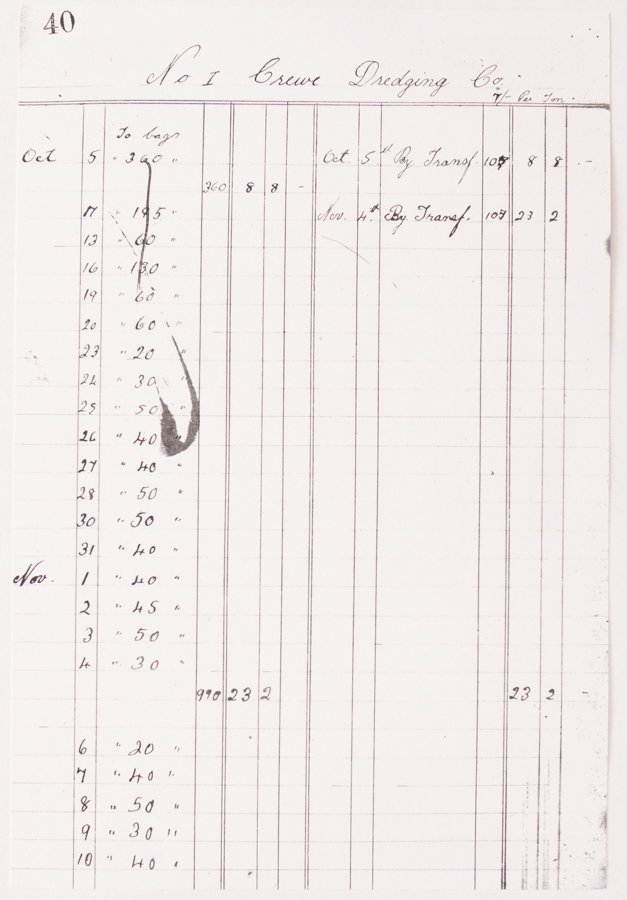 40
No I Crewe Dredging Co.
7/- Per Ton.
To bags
Oct 5 " 360 " Oct 5th By Transf. 107 8 8 -
360 8 8 -
17 " 195 " Nov. 4th By Transf. 107 23 2
13 " 60 "
16 " 130 "
19 " 60 "
20 " 60 "
23 " 20 "
24 " 30 "
25 " 50 "
26 " 40 "
27 " 40 "
28 " 50 "
30 " 50 "
31 " 40 "
Nov. 1 " 40 "
2 " 45 "
3 " 50 "
4 " 30 "
990 23 2 23 2 -
6 " 20 "
7 " 40 "
8 " 50 "
9 " 30 "
10 " 40 "